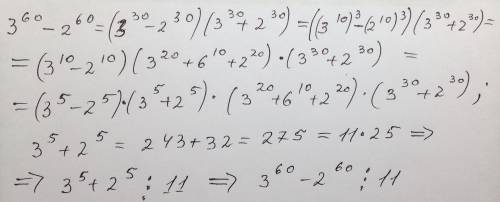 3⁶⁰ - 2⁶⁰ = (3³⁰ - 2³⁰)(3³⁰ + 2³⁰) = ((3¹⁰)³ - (2¹⁰)³)(3³⁰ + 2³⁰) =
= (3¹⁰ - 2¹⁰)(3²⁰ + 6¹⁰ + 2²⁰) · (3³⁰ + 2³⁰) =
= (3⁵ - 2⁵) · (3⁵ + 2⁵) · (3²⁰ + 6¹⁰ + 2²⁰) · (3³⁰ + 2³⁰) ;
3⁵ + 2⁵ = 243 + 32 = 275 = 11 · 25 =>
=> 3⁵ + 2⁵ ⋮ 11 => 3⁶⁰ - 2⁶⁰ ⋮ 11